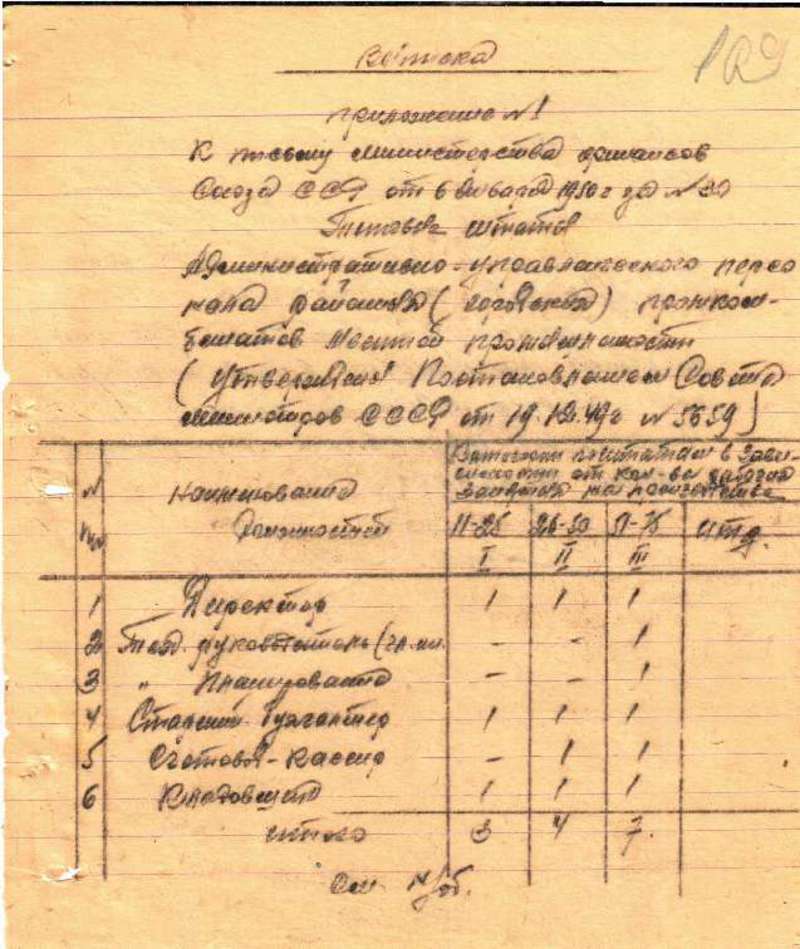 Выписка
189
приложение №1
К письму министерства финансов
Союза ССР от 6 января 1950 г за № 30
Типовые штаты
Административно-управленческого персо
нала районных (городских) промком-
бинатов местной промышленности
(Утверждены Постановлением Совета
министров СССР от 19.12.49г № 5659)
№ Наименование должностей
Количество штатов в зави-
симости от кол-ва рабочих
занятых на производстве
11-25 26-50 51-75 и т.д.
I II III
1 Директор 1 1 1
2 Техн. руковдитель (гл. ин. - - 1
3 " планирования - - 1
4 Старший бухгалтер 1 1 1
5 Счетовод-кассир - 1 1
6 Кладовщик 1 1 1
итого 3 4 7.
См. н/об.